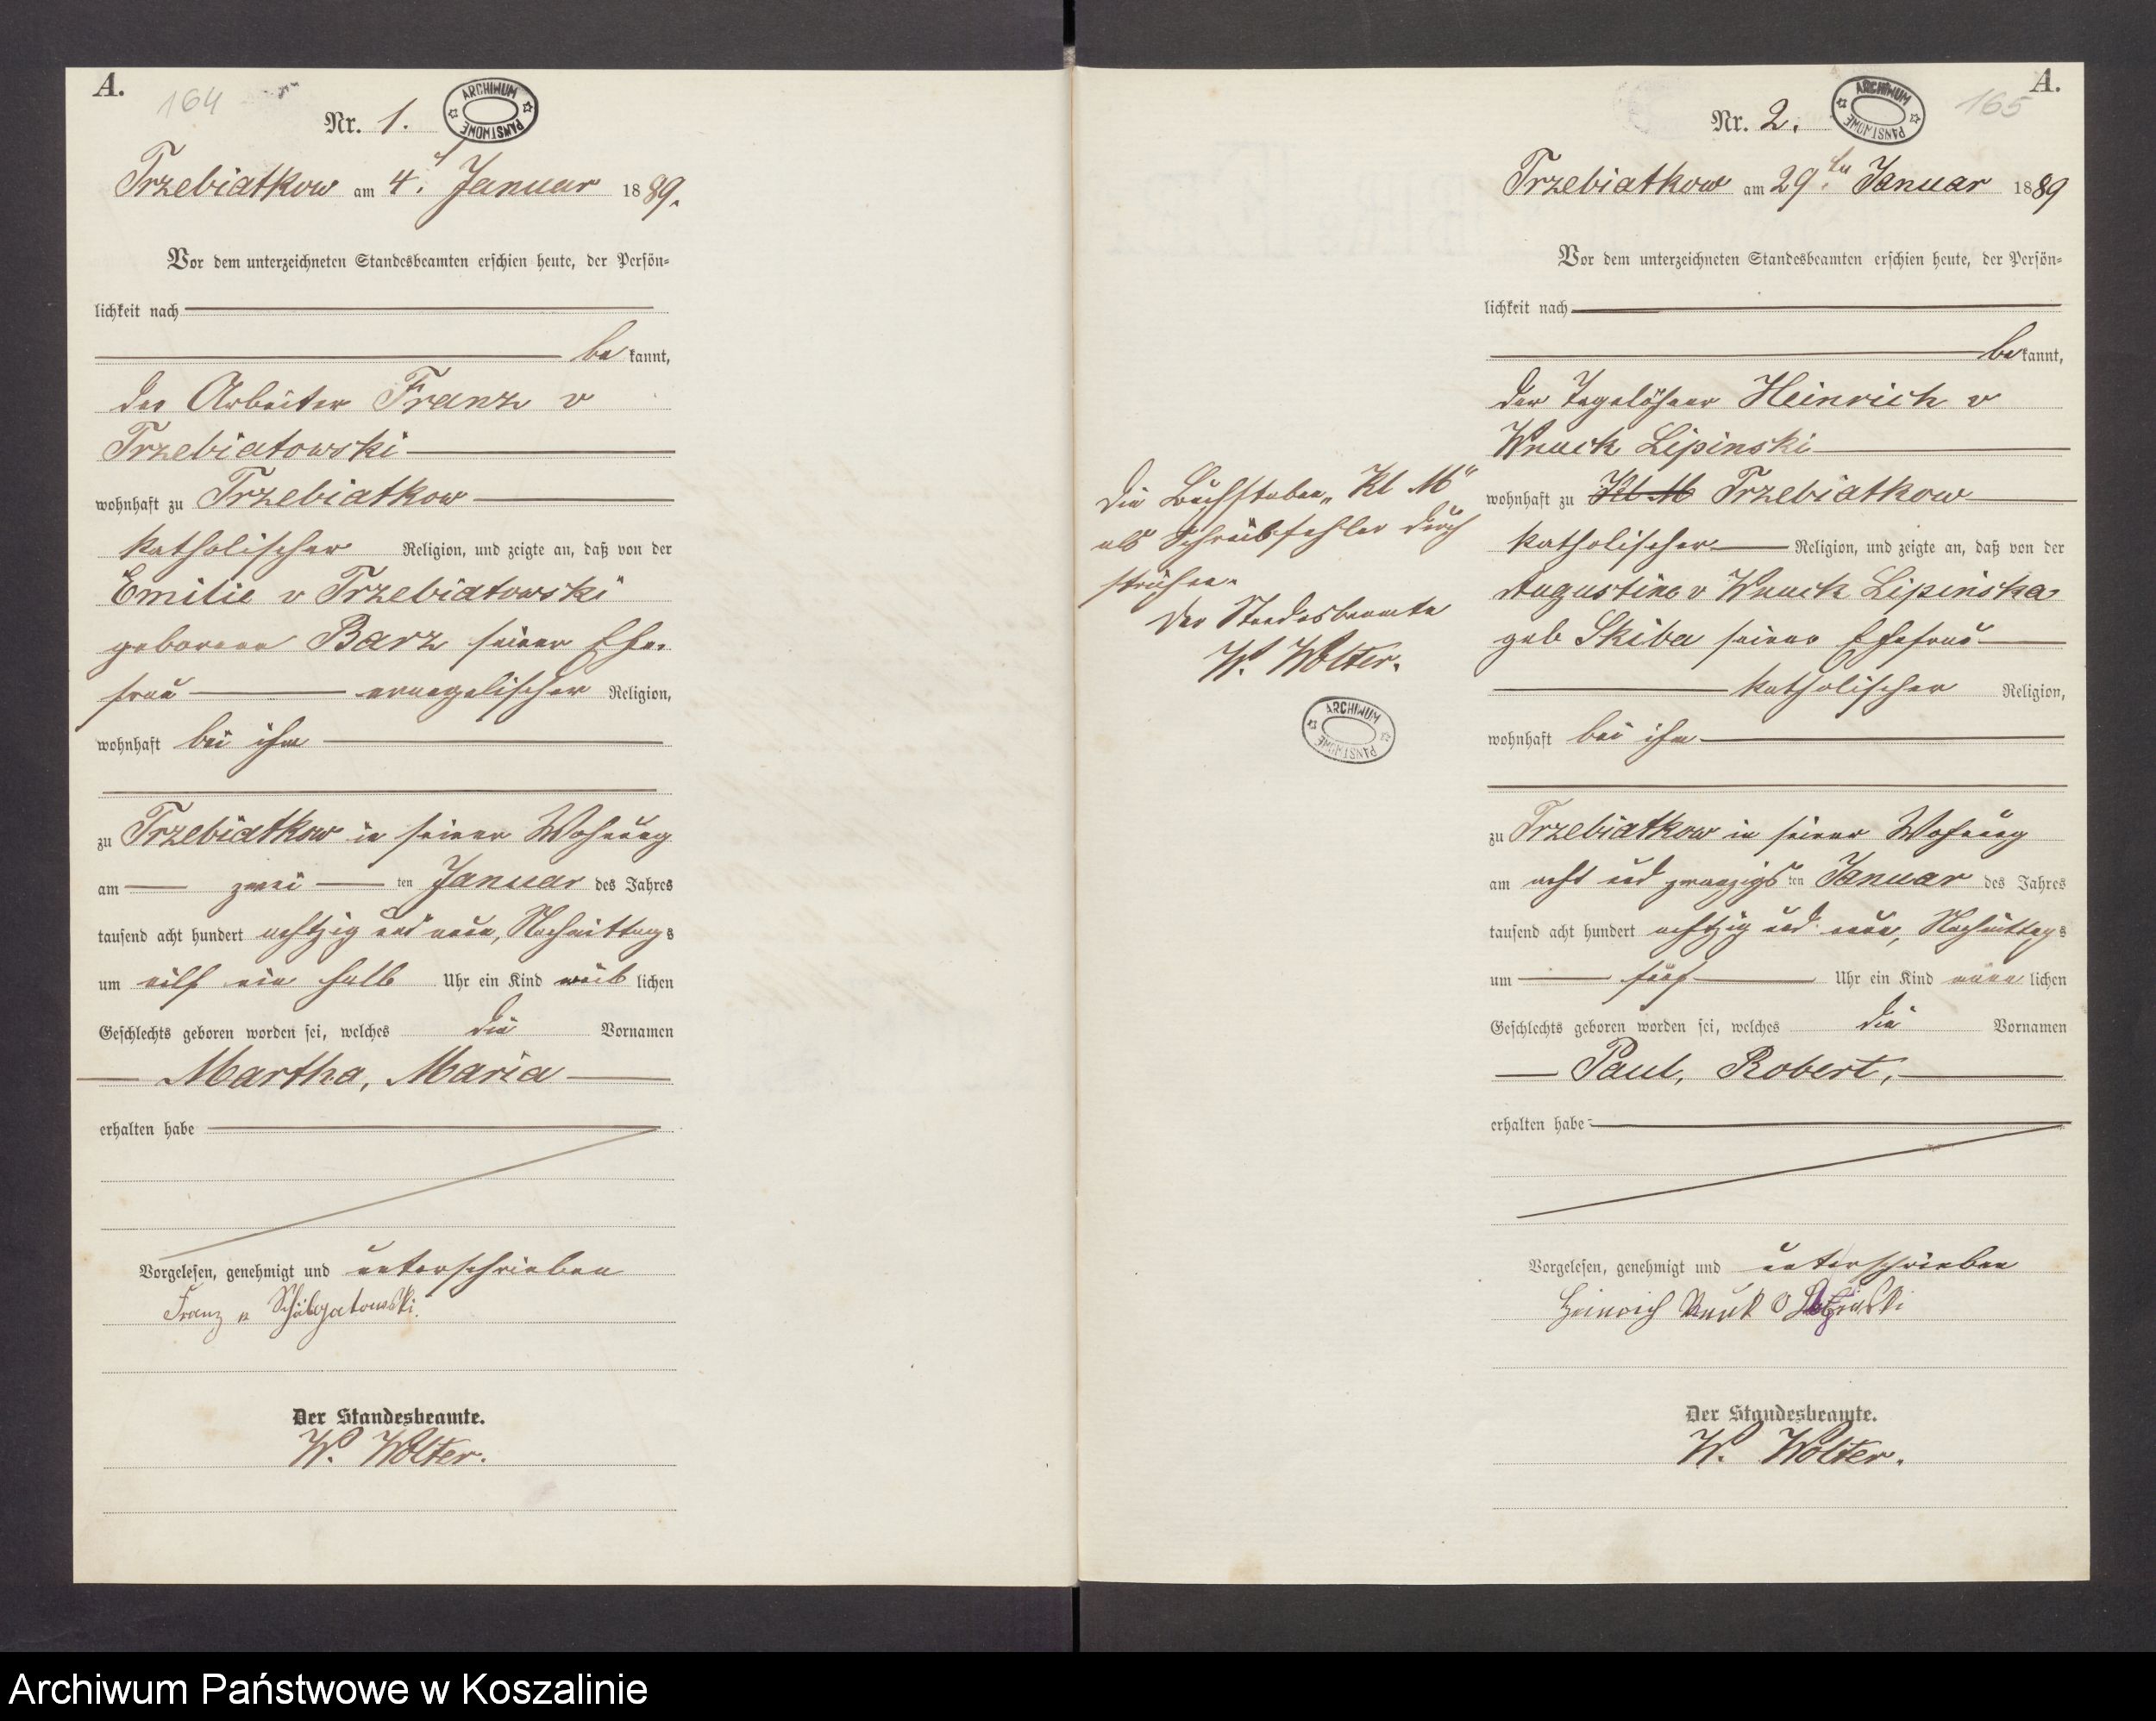 A.
164
Nr. 1.
ARCHIWUM PAŃSTWOWE
Trzebiatkow am 4. Januar 1889.
Vor dem unterzeichneten Standesbeamten erschien heute, der Persön=
lichkeit nach
be kannt,
der Arbeiter Franz v
Trzebiatowski
wohnhaft zu Trzebiatkow
katholischer Religion, und zeigte an, daß von der
Emilie v Trzebiatowski
geborene Barz seiner Ehe-
frau evangelischer Religion,
wohnhaft bei ihm
zu Trzebiatkow in seiner Wohnung
am zwei ten Januar des Jahres
tausend acht hundert achtzig und neun, Nachmittags
um eilf ein halb Uhr ein Kind weib lichen
Geschlechts geboren worden sei, welches die Vornamen
Martha, Maria
erhalten habe
Vorgelesen, genehmigt und unterschrieben
Franz v
Der Standesbeamte.
W. Wolter.
A.
165
Nr. 2.
ARCHIWUM PAŃSTWOWE
Trzebiatkow am 29.ten Januar 1889
Vor dem unterzeichneten Standesbeamten erschien heute, der Persön=
lichkeit nach
be kannt,
der Tagelöhner Heinrich v
Wnuck Lipinski
wohnhaft zu Kl M Trzebiatkow
katholischer Religion, und zeigte an, daß von der
Augustine v Wnuck Lipinska
geb Skiba seiner Ehefrau
katholischer Religion,
wohnhaft bei ihm
zu Trzebiatkow in seiner Wohnung
am acht und zwanzigs ten Januar des Jahres
tausend acht hundert achtzig und neun, Nachmittags
um fünf Uhr ein Kind männ lichen
Geschlechts geboren worden sei, welches die Vornamen
Paul, Robert,
erhalten habe
Vorgelesen, genehmigt und unterschrieben
Heinrich Wnuk v Lipinski
Der Standesbeamte.
W. Wolter.
Die Buchstaben „Kl M"
als Schreibfehler durch
strichen.
Der Standesbeamte
W. Wolter.
ARCHIWUM PAŃSTWOWE
Archiwum Państwowe w Koszalinie